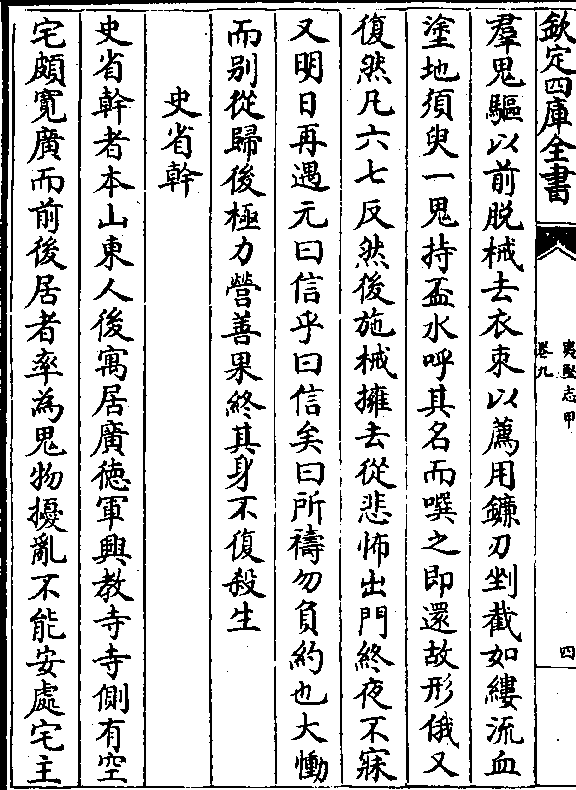 欽定四庫全書
夷堅志甲
卷九
四
羣鬼驅以前脱械去衣束以薦用鐮刀剉截如縷流血
塗地須臾一鬼持盃水呼其名而噀之即還故形俄又
復然凡六七反然後施械擁去從悲怖出門終夜不寐
又明日再遇元曰信乎曰信矣曰所禱勿負約也大慟
而别從歸後極力營善果終其身不復殺生
史省幹
史省幹者本山東人後寓居廣徳軍興教寺寺側有空
宅頗寛廣而前後居者率為鬼物擾亂不能安處宅主